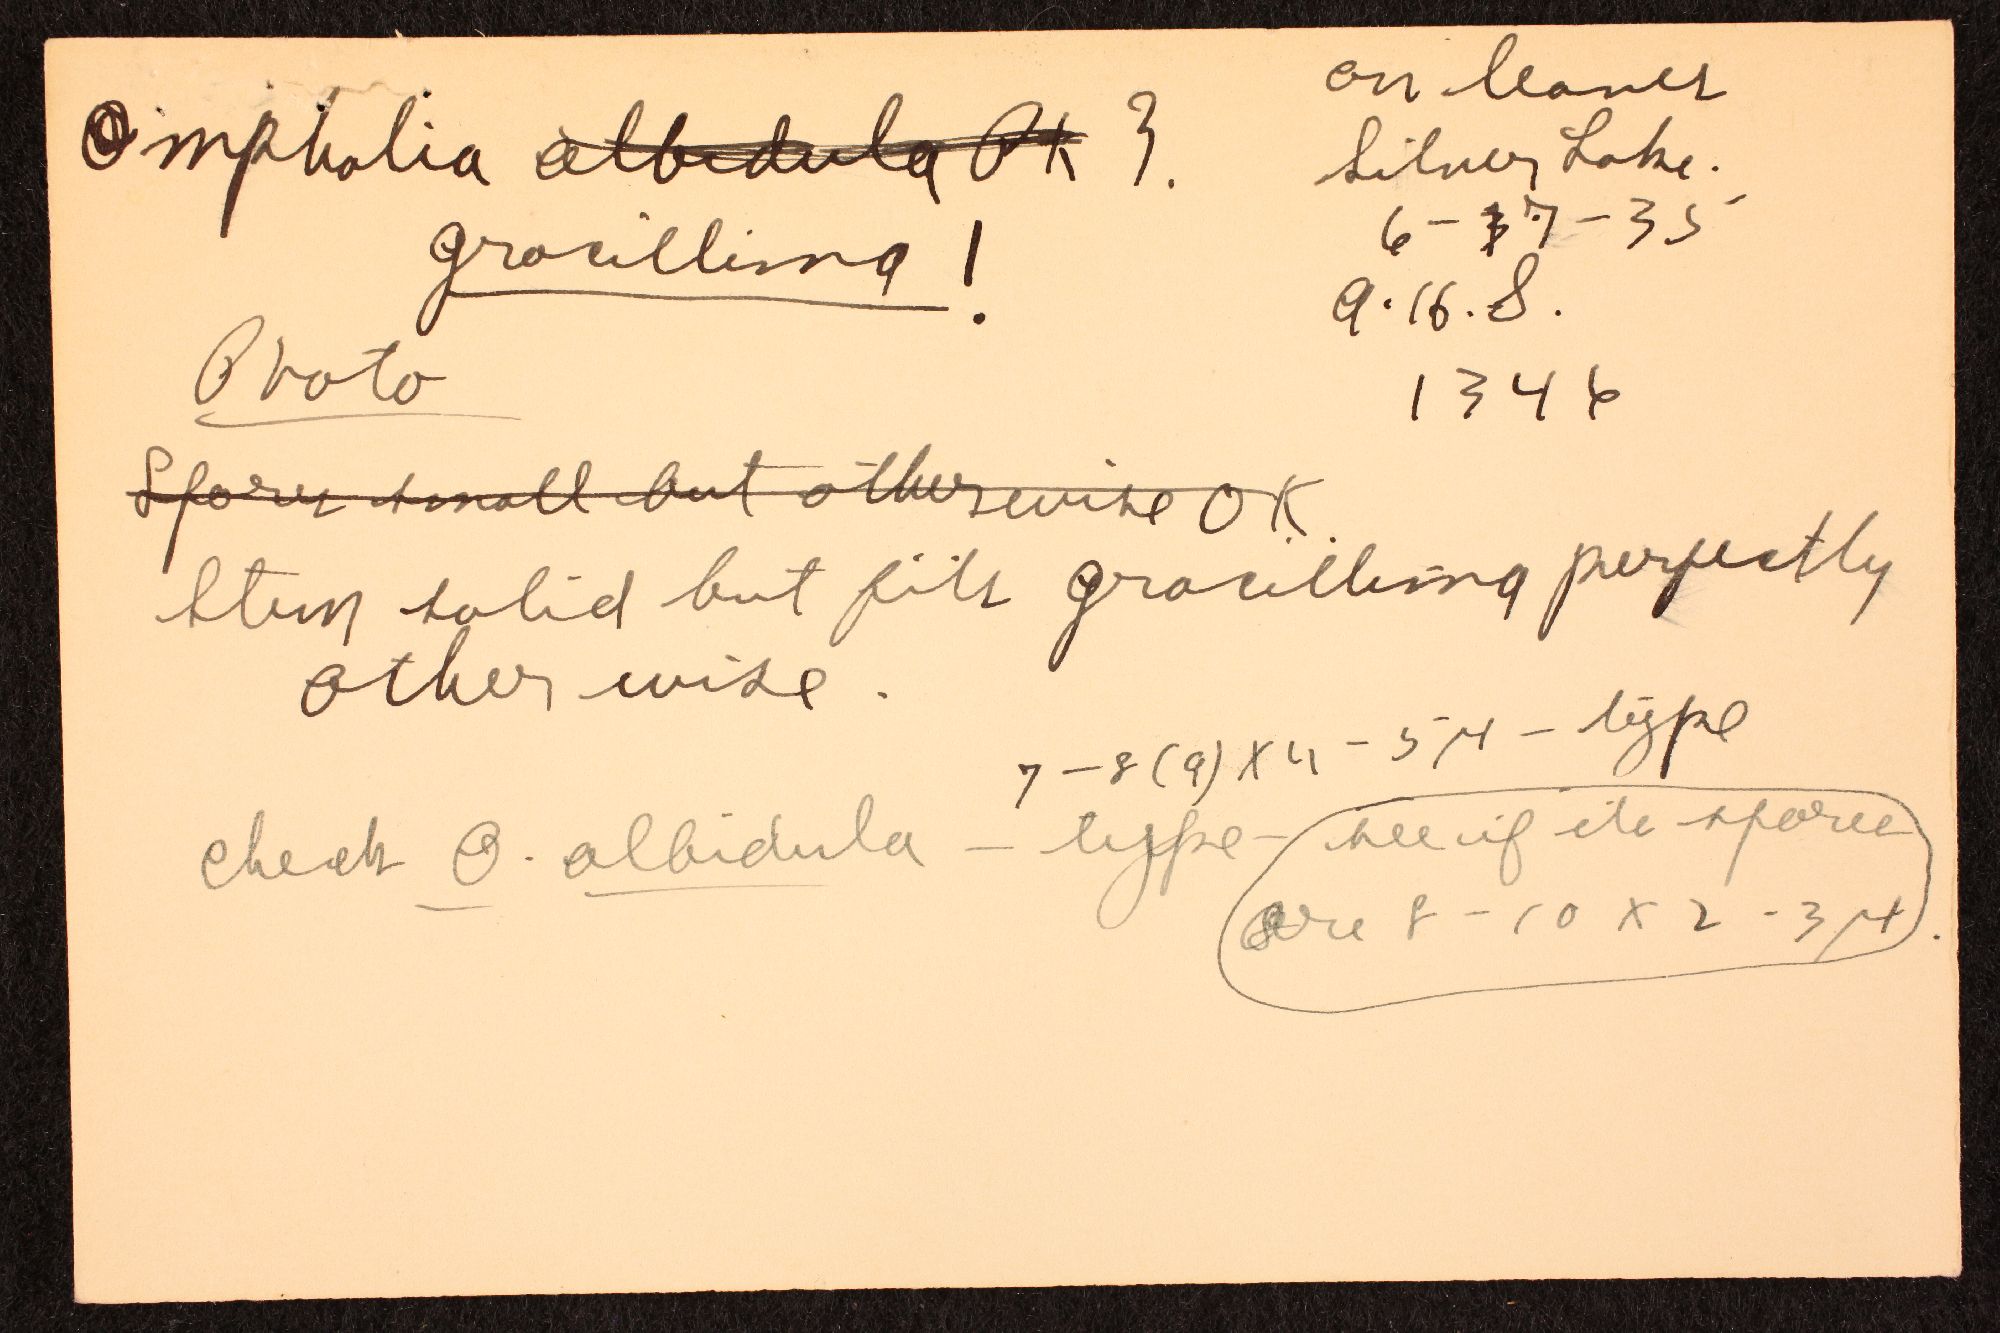 Omphalia albidula Pk ?.
gracillima !
on leaves
Silver Lake.
6-17-35
A.H.S.
1346
Photo
Spores small but otherwise OK
Stem solid but fits gracillima perfectly
otherwise.
7-8(9) X 4-5μ - type
check O. albidula - type - see if its spores
are 8-10 X 2-3μ.